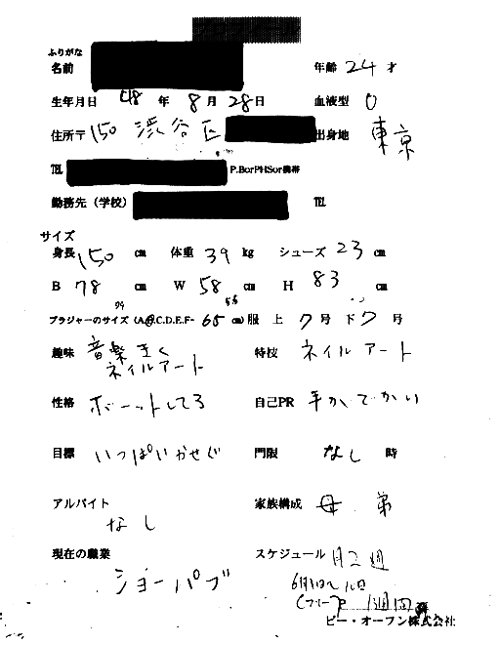 ふりがな
名前 年齢 24 才
生年月日 48 年 8 月 28 日 血液型 O
住所〒150 渋谷区 出身地 東京
TEL P.BorPHSor携帯
勤務先（学校） TEL
サイズ
身長 150 cm 体重 39 kg シューズ 23 cm
B 78 cm W 58 cm H 83 cm
ブラジャーのサイズ（A.B.C.D.E.F- 65 cm）服 上 7 号 下 7 号
趣味 音楽きく ネイルアート 特技 ネイルアート
性格 ボーットしてる 自己PR 手が でかい
目標 いっぱいかせぐ 門限 なし 時
アルバイト なし 家族構成 母 弟
現在の職業 ショーパブ スケジュール 月2週
6月1日〜
1週間
ビー・オーフン株式会社